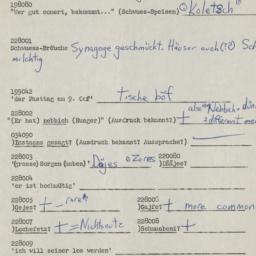 198080
"Wer gut oonert, bekommt..." (Schwues-Speisen) Koletsch
228001
Schwuess-Bräuche Synagoge geschmückt. Häuser auch(?) Sch
milchtig
195042
'der Fasttag am 9. Ocf' tische bof
228002
"(Er hat) nebbich (Hunger)" (Ausdruck bekannt?) + also Nebbich.
different
034090
(Ausdruck bekannt? Aussprache?)
228003
(grosse)Sorgen (haben) Dajes e Zores
220080
)Dääjes?
228004
'er ist hochmütig'
228005
)Gejes? + - rare
228006
)Gajfe? + more common
228007
)Lochefetz? + = Nichtsnutz
228008
)Schaubeni? +
228009
'ich will seiner los werden'